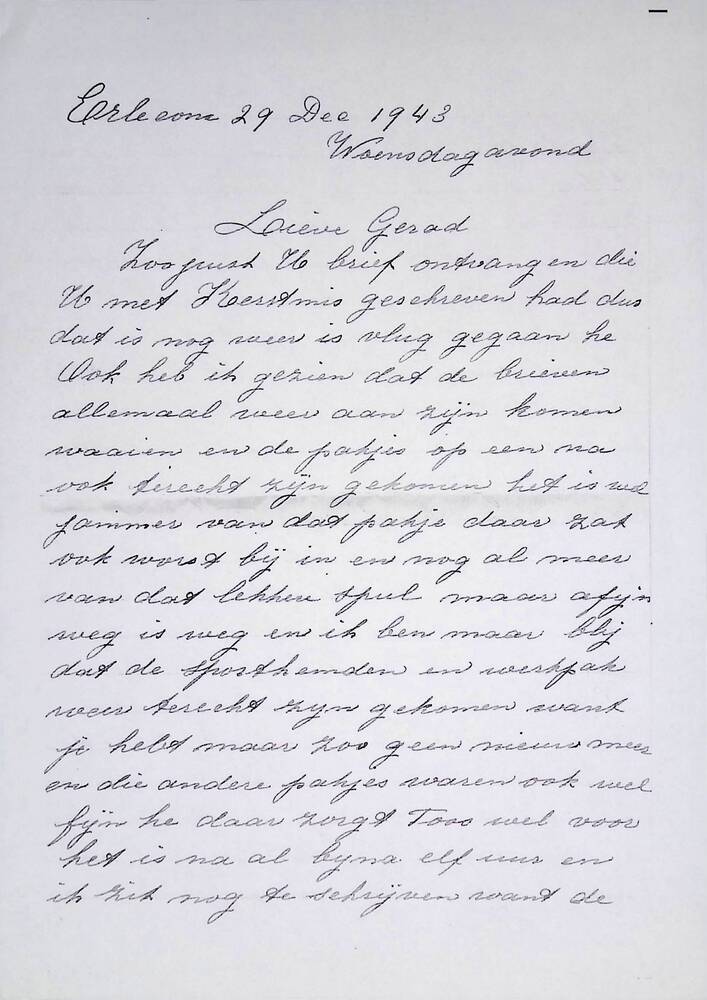 Erlecom 29 Dec 1943
Woensdagavond
Lieve Gerad
Zoo juist U brief ontvangen die
U met Kerstmis geschreven had dus
dat is nog weer is vlug gegaan he
Ook heb ik gezien dat de brieven
allemaal weer aan zijn komen
waaien en de pakjes op een na
ook terecht zijn gekomen het is wel
jammer van dat pakje daar zat
ook worst bij in en nog al meer
van dat lekkere spul maar afijn
weg is weg en ik ben maar blij
dat de sporthemden en werkpak
weer terecht zyn gekomen want
je hebt maar zoo geen nieuw meer
en die andere pakjes waren ook wel
fijn he daar zorgt Toos wel voor
het is na al byna elf uur en
ik zit nog te schrijven want de